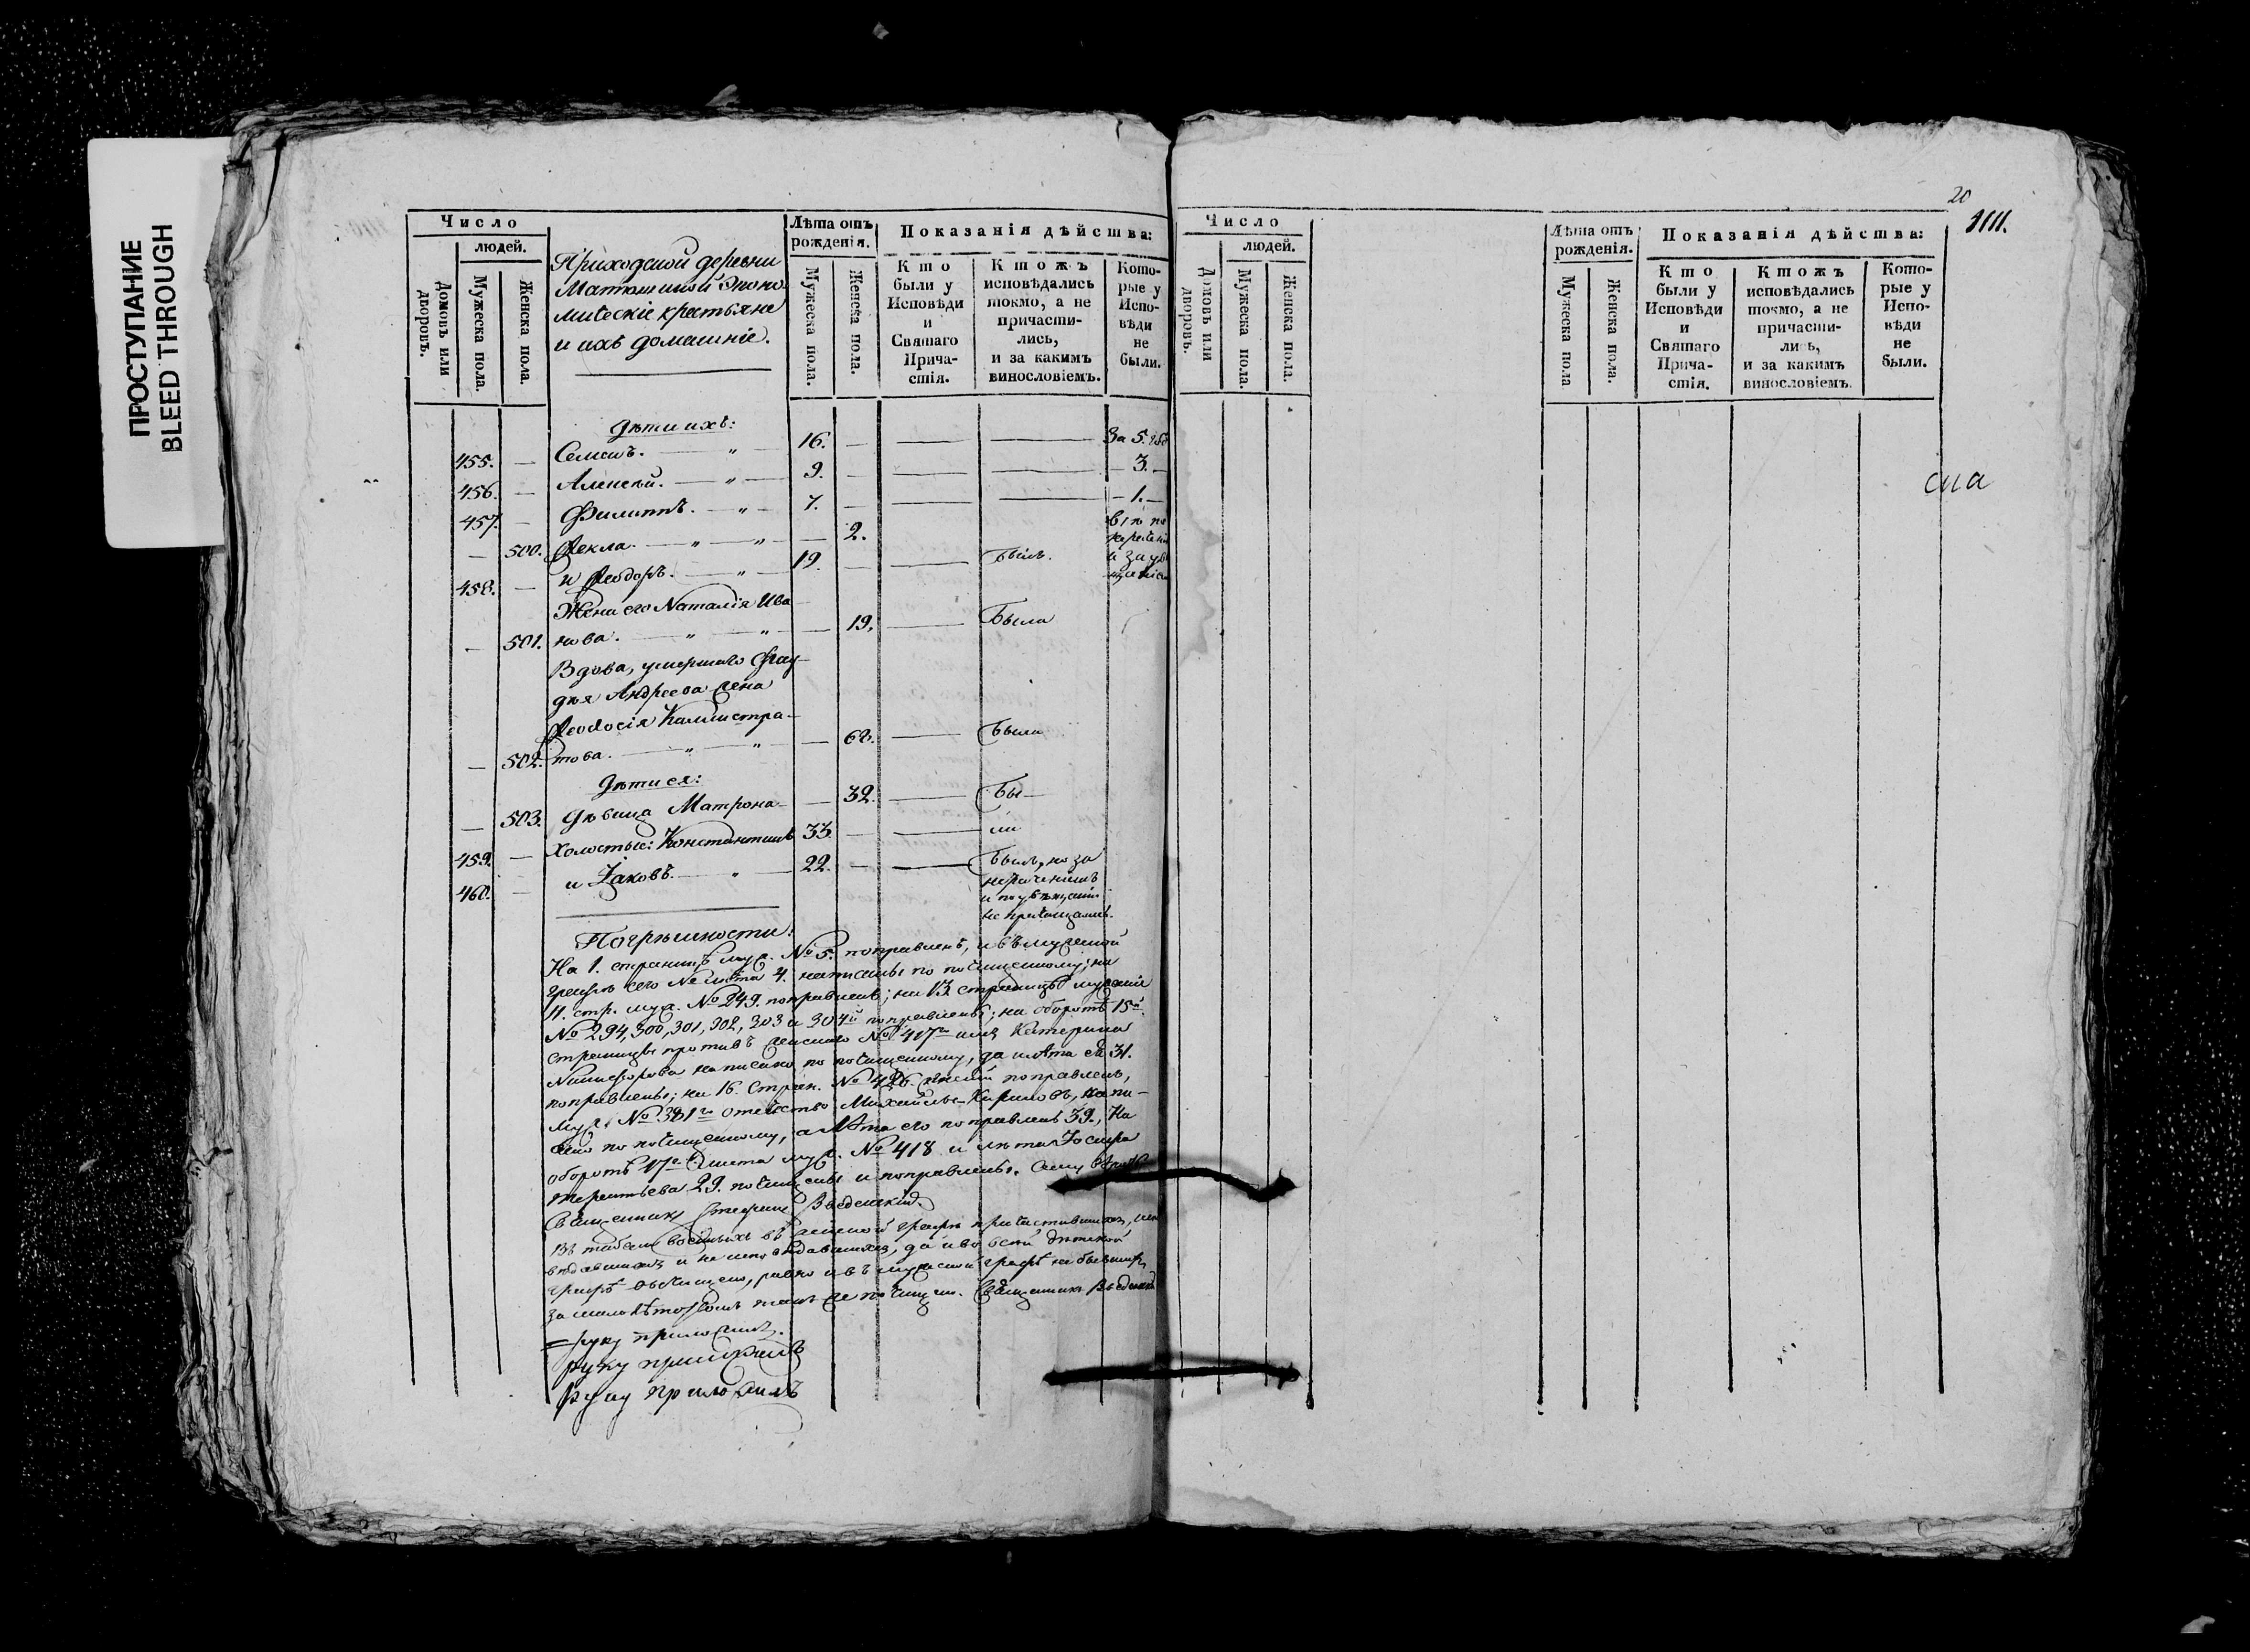 ПРОСТУПАНИЕ
BLEED THROUGH
Число
людей.
Домовъ или дворовъ.
Мужеска пола.
Женска пола.
Приходской деревни
Экано
мическіе крестьяне
и ихъ домашніе.
Лѣта отъ рожденія.
Мужеска пола.
Женска пола.
Показанія дѣйства:
Кто были у Исповѣди и Святаго Причастія.
Ктожъ исповѣдались токмо, а не причастились, и за какимъ винословіемъ.
Которые у Исповѣди не были.
дѣти ихъ:
455. — Семенъ. — „ — 16. — За 5.
456. — Алексѣй. — „ — 9. — 3. —
457. — Филиппъ. — „ — 7. — 1. —
— 500. Ѳекла. — „ — „ — 2.
458. — и Ѳеодоръ. — „ — 19. — Былъ.
Жена его Наталія Ива
— 501. нова. — „ — „ — 19. — Была
Вдова, умершаго Фад-
дея Андреева жена
Ѳеодосія Каллистра-
— 502. това. — „ — „ — 68. — Была
Дѣти ея:
— 503. дѣвица Матрона — 32. — Бы-
459. — Холостые: Константинъ 33. — ли
460. — и Іаковъ. — „ — 22. — Былъ, но за
нераченіемъ
не причащался.
Погрѣшности:
На 1. страницѣ муж. № 5. поправленъ, и въ мужеской
графѣ сего № лѣта 4. написаны по почищенному; на
11. стр. муж. № 249. поправленъ; на 13. страницѣ мужскіе
№ 294, 300, 301, 302, 303 и 304й поправлены; на оборотѣ 15й
страницы противъ женскаго № 417го имя Катерина
Никифорова написано по почищенному, да и лѣта ея 31.
поправлены; на 16. стран. № 426. женскій поправленъ,
муж. № 381го отечество Михайлы Кирилова, напи-
сано по почищенному, а лѣта его поправлены 39., На
оборотѣ 17го листа муж. № 418 и лѣта
Терентьева 29. почищены и поправлены.
Священникъ Введенскій
Въ табели въ женской графѣ причастившихся,
да и во всей дѣтской
графѣ почищено, равно и въ мужеской графѣ не бывшихъ
за малолѣтствомъ также почищено. Священникъ Введенскій
= руку приложилъ.
руку приложилъ
руку приложилъ
20
1111.
Число
людей.
Домовъ или дворовъ.
Мужеска пола.
Женска пола.
Лѣта отъ рожденія.
Мужеска пола
Женска пола.
Показанія дѣйства:
Кто были у Исповѣди и Святаго Причастія.
Ктожъ исповѣдались токмо, а не причастились, и за какимъ винословіемъ.
Которые у Исповѣди не были.